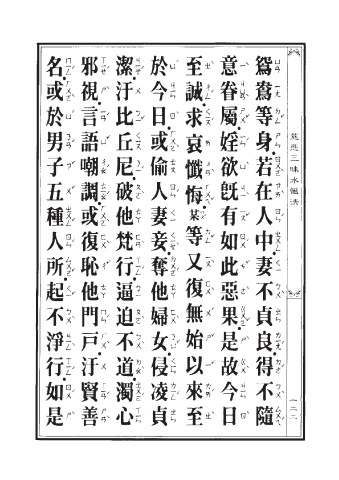 慈悲三昧水懺法
一二二
鴛鴦等身若在人中妻不貞良得不隨
意眷屬婬欲旣有如此惡果是故今日
至誠求哀懺悔某等又復無始以來至
於今日或偷人妻妾奪他婦女侵凌貞
潔汙比丘尼破他梵行逼迫不道濁心
邪視言語嘲調或復恥他門戶汙賢善
名或於男子五種人所起不淨行如是